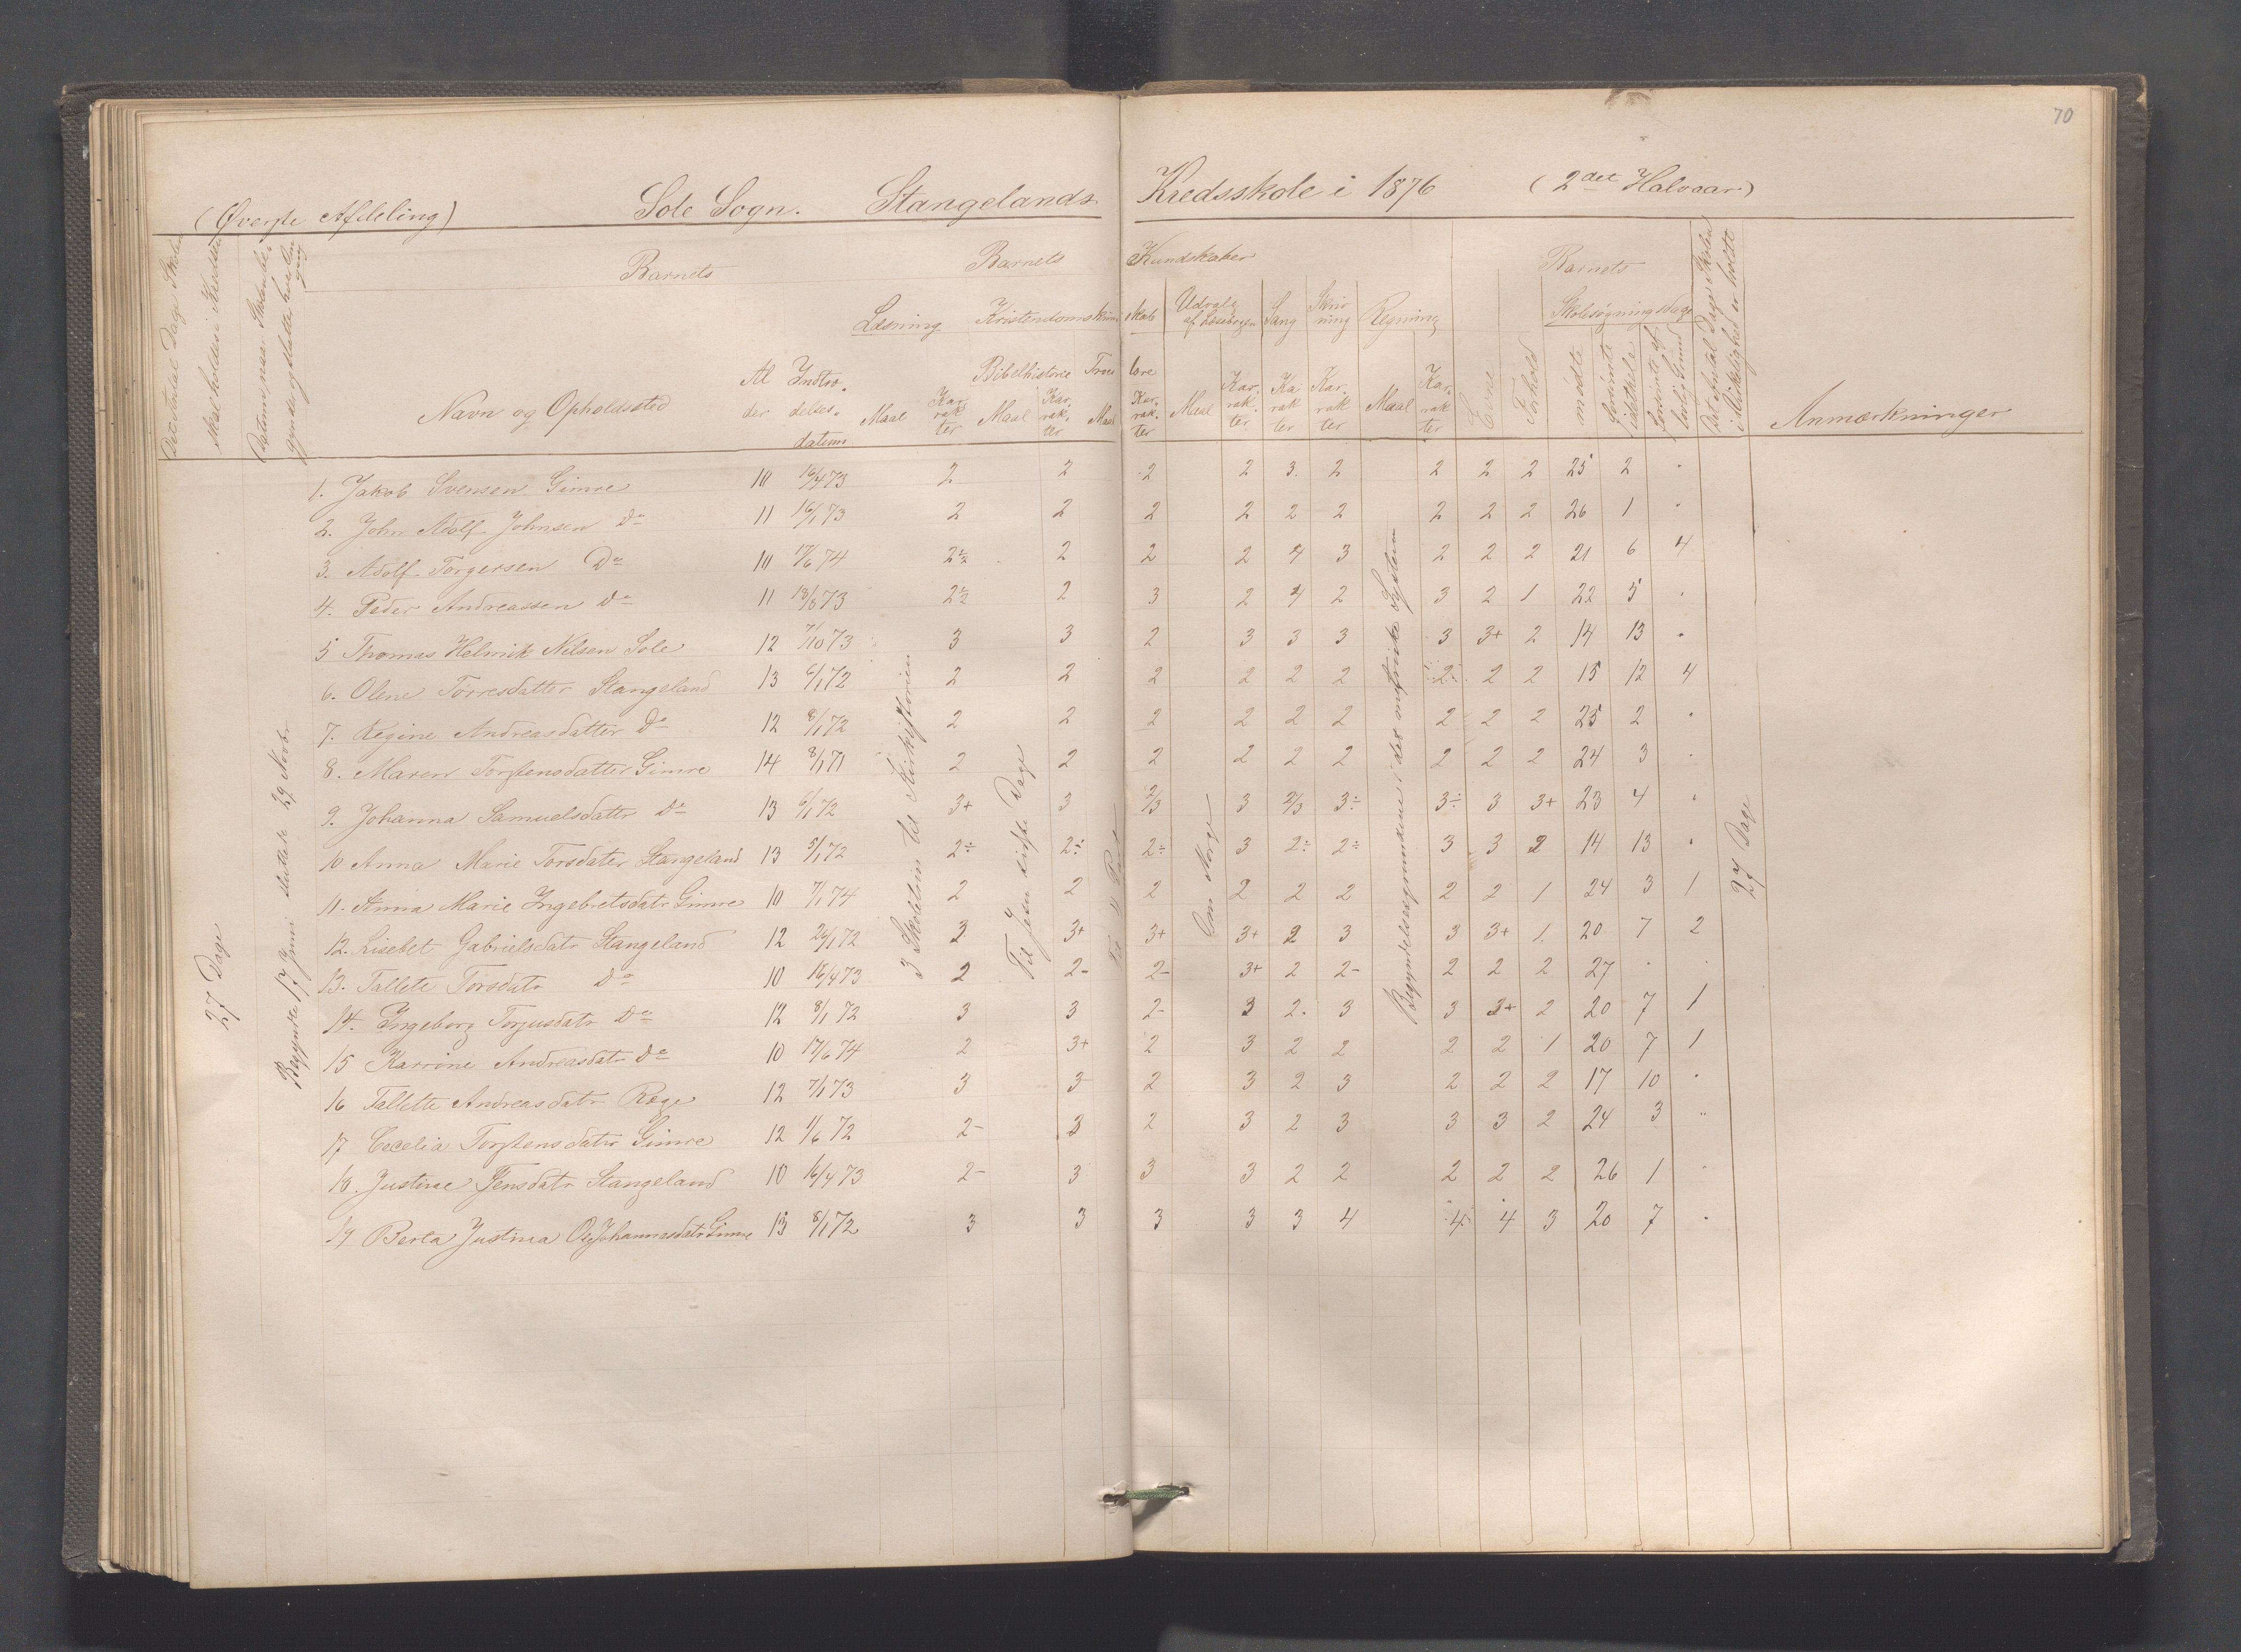 70
(Øverste Afdeling) Sole Sogn. Stangelands Kredsskole i 1876 (2det Halvaar)
Det Antal Dage Skolen skal holdes i Kredsen
Datum, naar Skolen begynder og slutter hver Omgang
Barnets
Barnets Kundskaber
Barnets
Det Antal Dage Skolen i Virkelighed er holdt
Læsning Kristendomskundskab Udvalg af Læsebogen Sang Skrivning Regning Skolesøgningsdage
Bibelhistorie Troeslære
Navn og Opholdssted Alder Indtrædelsesdatum Maal Karakter Maal Karakter Maal Karakter Maal Karakter Karakter Karakter Maal Karakter Evne Forhold mødte forsømte i det hele forsømte af lovlig Grund Anmærkninger
27 Dage
Begyndte 17 Juni sluttede 29 Novbr
3 Skoletrin til Kirkehistorien
Til Jesu sidste Dage
Om Norge
Begyndelsesgrundene i det metriske System
27 Dage
1. Jakob Svensen Gimre 10 16/4 73 2 2 2 2 3. 2 2 2 2 25 2 "
2. John Adolf Johnsen Do 11 16/1 73 2 2 2 2 2 2 2 2 2 26 1 "
3. Adolf Torgersen Do 10 17/6 74 2½ 2 2 2 4 3 2 2 2 21 6 4
4. Peder Andreassen Do 11 13/8 73 2½ 2 3 2 4 2 3 2 1 22 5 "
5 Thomas Helmik Nilsen Sole 12 7/10 73 3 3 2 3 3 3 3 3+ 2 14 13 "
6. Olene Tørresdatter Stangeland 13 6/1 72 2 2 2 2 2 2 2 2 2 15 12 4
7. Regine Andreasdatter Do 12 8/1 72 2 2 2 2 2 2 2 2 2 25 2 "
8. Maren Torstensdatter Gimre 14 3/1 71 2 2 2 2 2 2 2 2 2 24 3 "
9. Johanna Samuelsdattr Do 13 6/1 72 3+ 3 2/3 3 2/3 3÷ 3÷ 3 3+ 23 4 "
10 Anna Marie Torsdater Stangeland 13 8/1 72 2÷ 2÷ 2÷ 3 2÷ 2÷ 3 3 2 14 13 "
11. Anna Marie Ingebretsdatr Gimre 10 7/1 74 2 2 2 2 2 2 2 2 1 24 3 1
12. Lisebet Gabrielsdatr Stangeland 12 24/1 72 3 3+ 3+ 3+ 2 3 3 3+ 1. 20 7 2
13. Tallete Torsdatr Do 10 16/4 73 2 2- 2- 3+ 2 2- 2 2 2 27 " "
14. Ingeborg Torjusdatr Do 12 8/1 72 3 3 2- 3 2. 3 3 3+ 2 20 7 1
15 Karrine Andreasdatr Do 10 17/6 74 2 3+ 2 3 2 2 2 2 1 20 7 1
16 Tallette Andreasdatr Rege 12 7/1 73 3 3- 2 3 2 3 2 2 2 17 10 "
17 Cecelia Torstensdatr Gimre 12 1/6 72 2- 3 2 3 2 3 3 3 2 24 3 "
18. Justine Jensdatr Stangeland 10 16/4 73 2- 3 3 3 2 2 2 2 2 26 1 "
19 Berta Justina OleJohannesdatr Gimre 13 8/1 72 3 3 3 3 3 4 4 4 3 20 7 "